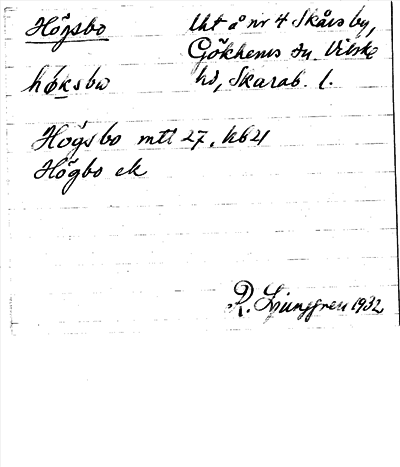 Högsbo
Lht å nr 4 Skårs by,
Gökhems sn Vilske
hd, Skarab. l.
høksbω
Högsbo mtl 27, kb 21
Högbo ek
R. Ljunggren 1932